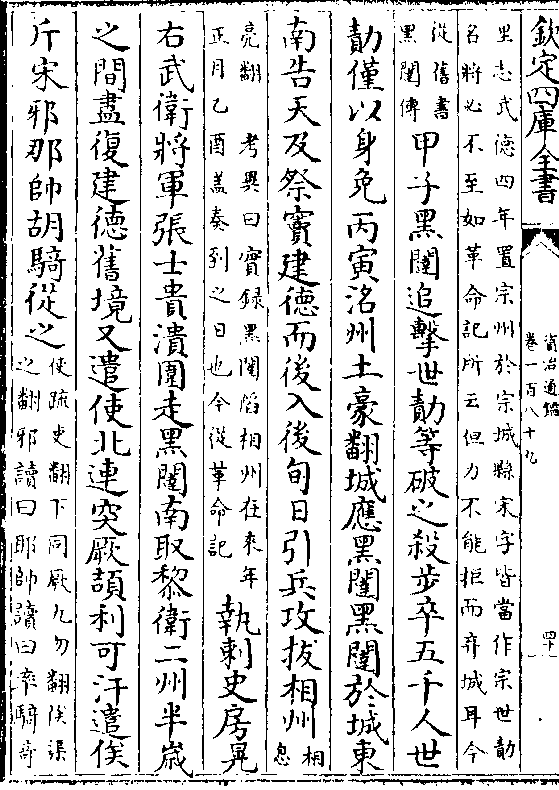 欽定四庫全書
資治通鑑
卷一百八十九
里志武德四年置宗州於宗城縣宋字皆當作宗世勣
名將必不至如革命記所云但力不能拒而弃城耳今
從舊書
黑闥傳
甲子黑闥追擊世勣等破之殺步卒五千人世
勣僅以身免丙寅洺州土豪翻城應黑闥黑闥於城東
南告天及祭竇建德而後入後旬日引兵攻拔相州
相
息
亮翻 考異曰實録黑闥陷相州在來年
正月乙酉蓋奏到之日也今從革命記
執刺史房晃
右武衛將軍張士貴潰圍走黑闥南取黎衛二州半歲
之間盡復建德舊境又遣使北連突厥頡利可汗遣俟
斤宋邪那帥胡騎從之
使疏吏翻下同厥九勿翻俟渠
之翻邪讀曰耶帥讀曰率騎奇